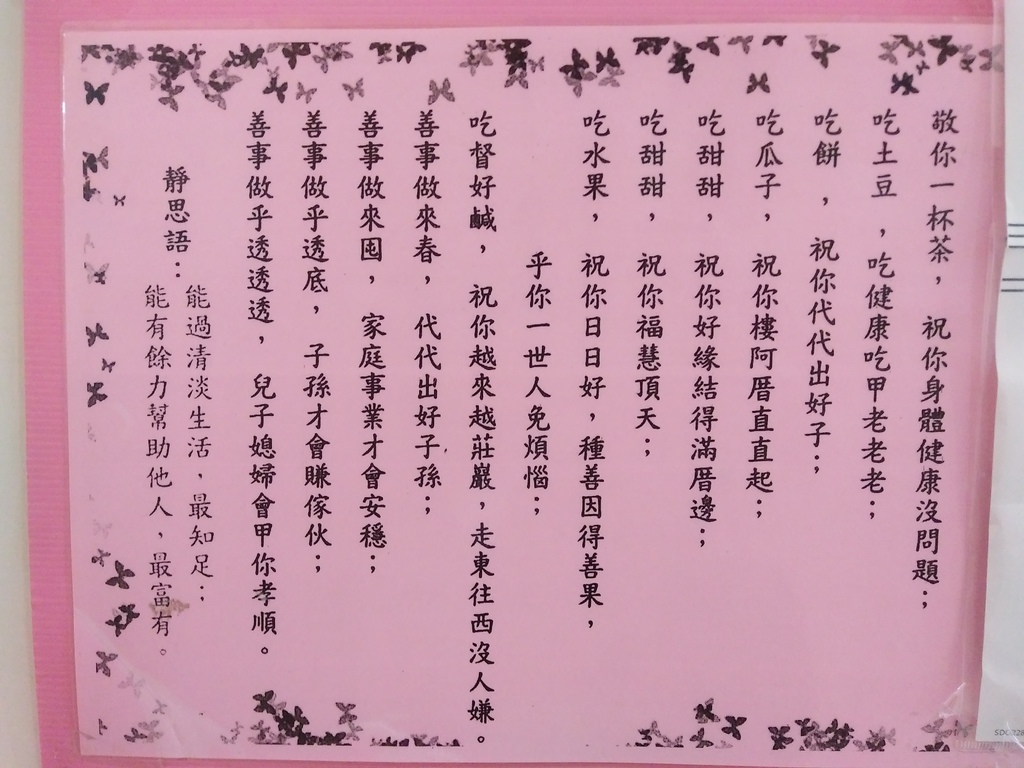 敬你一杯茶，祝你身體健康沒問題；
吃土豆，吃健康吃甲老老老；
吃餅，祝你代代出好子；
吃瓜子，祝你樓阿厝直直起；
吃甜甜，祝你好緣結得滿厝邊；
吃甜甜，祝你福慧頂天；
吃水果，祝你日日好，種善因得善果，
乎你一世人免煩惱；
吃督好鹹，祝你越來越莊嚴，走東往西沒人嫌。
善事做來春，代代出好子孫；
善事做來囤，家庭事業才會安穩；
善事做乎透底，子孫才會賺傢伙；
善事做乎透透透，兒子媳婦會甲你孝順。
靜思語：
能過清淡生活，最知足；
能有餘力幫助他人，最富有。